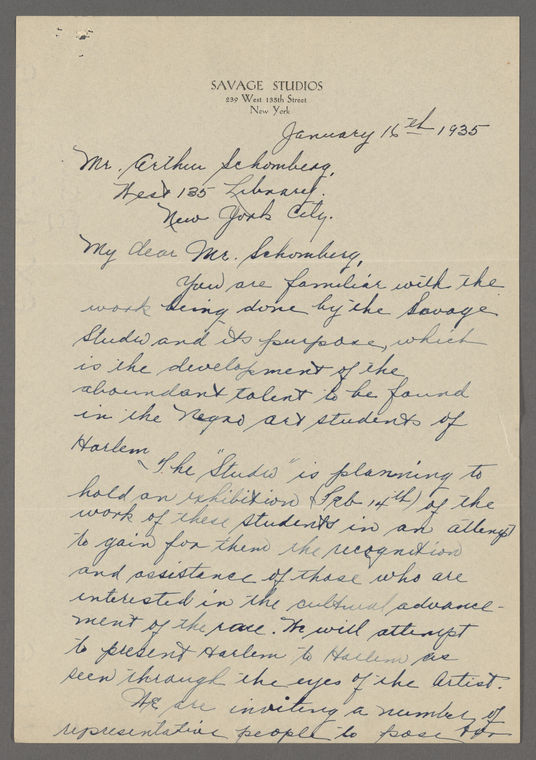 SAVAGE STUDIOS
239 West 135th Street
New York
January 16th 1935
Mr. Arthur Schomberg,
West 135 Library.
New York City.
My dear Mr. Schomberg,
You are familiar with the
work being done by the Savage
Studio and its purpose, which
is the development of the
aboundant talent to be found
in the Negro art students of
Harlem
The "Studio" is planning to
hold an exhibition (Feb 14th) of the
work of these students in an attempt
to gain for them the recognition
and assistance of those who are
interested in the cultural advance-
ment of the race. We will attempt
to present Harlem to Harlem as
seen through the eyes of the Artist.
We are inviting a number of
representative people to pose for